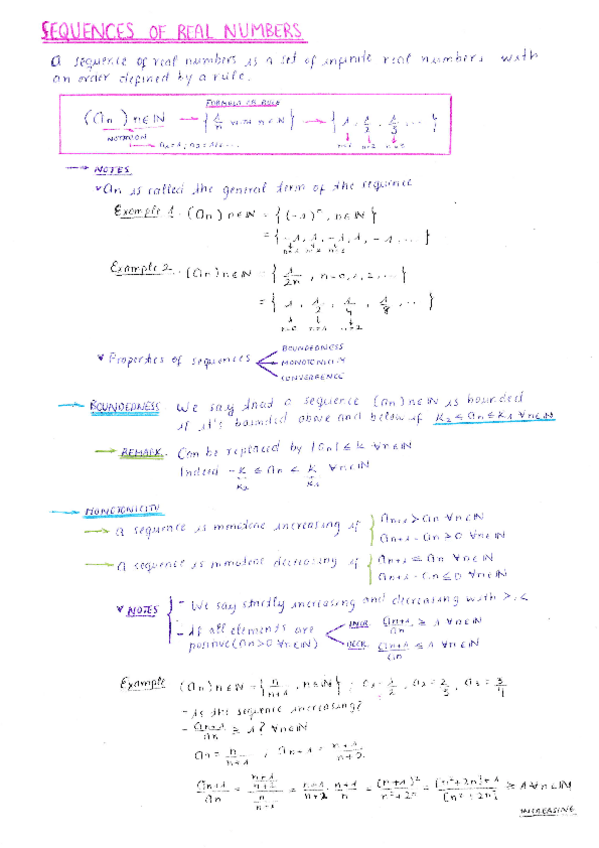 SEQUENCES OF REAL NUMBERS
A sequence of real numbers is a set of infinite real numbers with
an order defined by a rule.
FORMULA OR RULE
(an) n∈ℕ → { 1/n with n∈ℕ } → { 1, 1/2, 1/3, ... }
NOTATION
n=1 n=2 n=3
→ NOTES
an is called the general term of the sequence
Example 1. (an) n∈ℕ = { (-1)ⁿ, n∈ℕ }
= { -1, 1, -1, 1, -1, ... }
Example 2. (an) n∈ℕ = { 1/2n, n=0,1,2,... }
= { 1, 1/2, 1/4, 1/8, ... }
n=0 n=1 n=2
Properties of sequences
BOUNDEDNESS
MONOTONICITY
CONVERGENCE
→ BOUNDEDNESS We say that a sequence (an) n∈ℕ is bounded
if it's bounded above and below if K2 ≤ an ≤ K1 ∀n∈ℕ
→ REMARK. Can be replaced by |an| ≤ K ∀n∈ℕ
Indeed -K ≤ an ≤ K ∀n∈ℕ
K2 K1
→ MONOTONICITY
→ A sequence is monotone increasing if { an+1 > an ∀n∈ℕ
an+1 - an > 0 ∀n∈ℕ
→ A sequence is monotone decreasing if { an+1 ≤ an ∀n∈ℕ
an+1 - an ≤ 0 ∀n∈ℕ
NOTES - We say strictly increasing and decreasing with >, <
- If all elements are
positive (an>0 ∀n∈ℕ)
INCR. an+1/an ≥ 1 ∀n∈ℕ
DECR. an+1/an ≤ 1 ∀n∈ℕ
Example (an) n∈ℕ = { n/n+1, n∈ℕ } ; a1 = 1/2, a2 = 2/3, a3 = 3/4
- Is the sequence increasing?
- an+1/an ≥ 1? ∀n∈ℕ
an = n/n+1, an+1 = n+1/n+2
an+1/an = (n+1/n+2)/(n/n+1) = n+1/n+2 · n+1/n = (n+1)²/n²+2n = [n²+2n]+1/[n²+2n] ≥ 1 ∀n∈ℕ
INCREASING